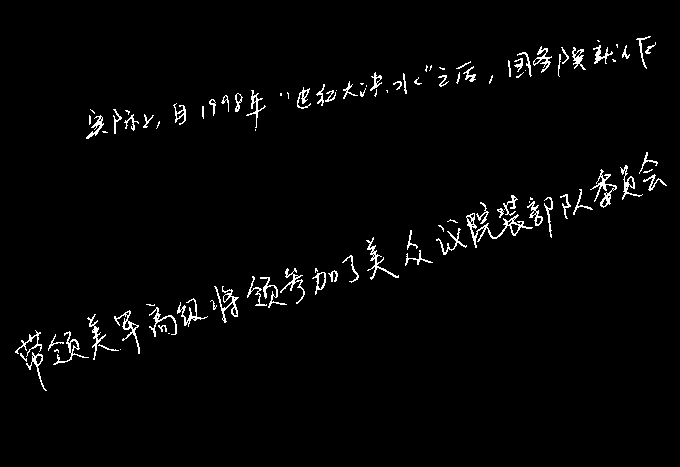 实际上,自1998年“世纪大洪水”之后,国务院就在
带领美军高级将领参加了美众议院装部队委员会